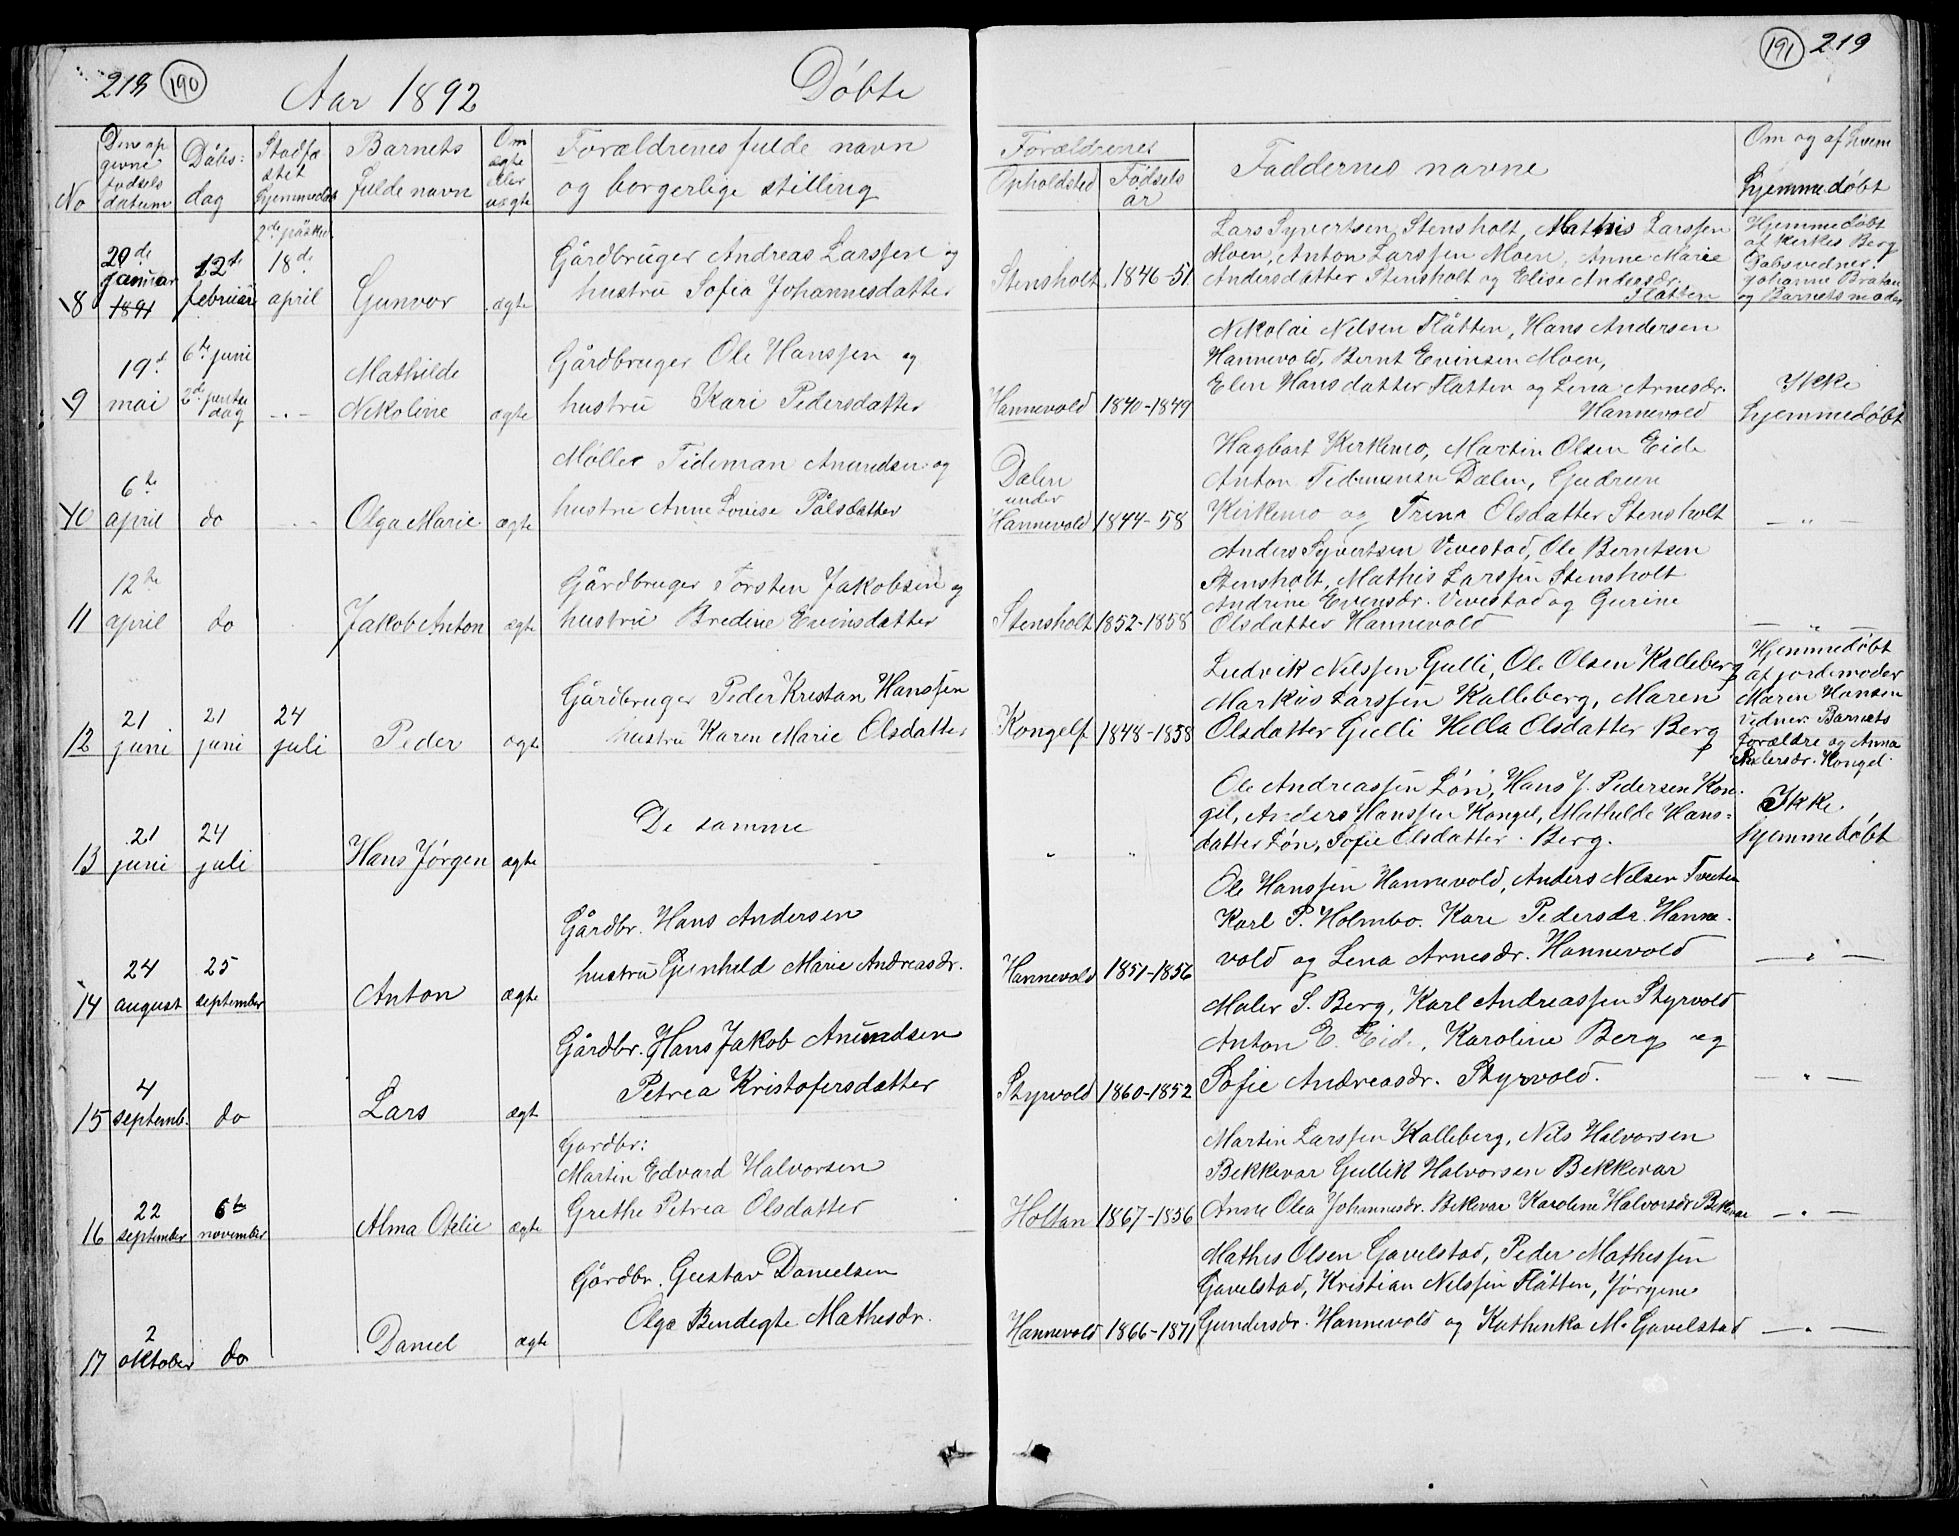 219 190
Aar 1892 Döbte
No
Den op
givne
födsels
datum
Döbs:
dag
Stadfæ
stet
hjemmedåb
Barnets
fulde navn
Om
ægte
eller
uægte
Forældrenes fulde navn
og borgerlige stilling
8
29de
Januar
1891
12te
februar
2den påskd.
18de
april
Gunvor
ægte
Gårdbruger Andreas Larssen og
hustru Sofia Johannesdatter
9
19d
mai
6te juni
2den pintse
dag
-"-
Mathilde
Nikoline
ægte
Gårdbruger Ole Hanssen og
hustru Kari Pedersdatter
10
6te
april
do
Olga Marie
ægte
Møller Tideman Amundsen og
hustru Anne Lovise Pålsdatter
11
12te
april
do
Jakob Anton
ægte
Gårdbruger Torsten Jakobsen og
hustru Bredine Evinsdatter
12
21
juni
21
juni
24
juli
Peder
ægte
Gårdbruger Peder Kristan Hanssen
hustru Karen Marie Olsdatter
13
21
juni
24
juli
Hans Jörgen
ægte
De samme
14
24
august
25
september
Anton
ægte
Gårdbr. Hans Andersen
hustru Gunhild Marie Andreasdr.
15
4
septemb.
do
Lars
ægte
Gårdbr. Hans Jakob Anundsen
Petrea Kristofersdatter
16
22
september
6te
november
Alma Ofelie
ægte
Gardbr:
Martin Edvard Halvorsen
Grethe Petrea Olsdatter
17
2
oktober
do
Daniel
ægte
Gårdbr. Gustav Danielsen
Olga Bendegte Mathisdr.
191 219
Forældrenes
Opholdsted
Fødsels
år
Faddernes navne
Om og af hvem
hjemmedøbt
Stensholt
1846-51
Lars Syvertsen Stensholt, Mathis Larssen
Moen, Anton Larssen Moen, Anne Marie
Andersdatter Stensholt og Elise Andersdr.
Flåtten
Hjemmedøbt
af Kirkes. Berg
Dåbsvidner:
Johanne Bratan
og Barnets moder
Hannevold
1840-1849
Nikolai Nilsen Flåtten, Hans Andersen
Hannevold, Bernt Evinsen Moen,
Elen Hansdatter Flatten og Lina Arnesdr.
Hannevold
Ikke
hjemmedøbt
Dælen
under
Hannevold
1844-58
Hagbart Kirkemo, Martin Olsen Eide
Anton Tidmansen Dælen, Gudrun
Kirkemo og Trina Olsdatter Stensholt
— " —
Stensholt
1852-1858
Anders Syvertsen Vivestad, Ole Berntsen
Stensholt, Mathis Larssen Stensholt
Andrine Evensdr. Vivestad og Gurine
Olsdatter Hannevold
— " —
Kongelf
1848-1858
Ludvik Nilssen Gulli, Ole Olsen Kalleberg
Markus Larssen Kalleberg, Maren
Olsdatter Gulli Hella Olsdatter Berg
Hjemmedøbt
af jordemoder
Maren Hansen
Vidner: Barnets
forældre og Anna
Pedersdr. Kongel.
"
"
Ole Andreassen Løn, Hans J. Pedersen Kon-
gel, Anders Hanssen Kongel, Mathilde Hans=
datter Løn, Sofie Olsdatter Berg.
Ikke
hjemmedøbt
Hannevold
1851-1856
Ole Hanssen Hannevold, Anders Nilsen Tveten
Karl P. Holmbo. Kari Pedersdr. Hanne-
vold og Lina Arnesdr. Hannevold
— " —
Styrvold
1860-1852
Maler S. Berg, Karl Andreassen Styrvold
Anton E. Eide, Karoline Berg og
Sofie Andreasdr. Styrvold.
— " —
Holtan
1867-1856
Martin Larssen Kalleberg, Nils Halvorsen
Bekkevar Gullik Halvorsen Bekkevar
Anne Olea Johannesdr. Bekevar Karoline Halvorsdr Bekevar
— " —
Hannevold
1866-1871
Mathis Olsen Gavelstad, Peder Mathissen
Gavelstad, Kristian Nilssen Flåtten, Jörgine
Gundersdr. Hannevold og Kathinka M. Gavelstad
— " —